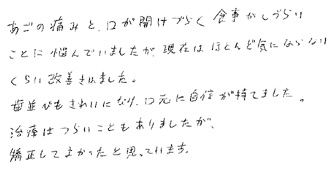 あごの痛みと、口が開けづらく食事がしづらい
ことに悩んでいましたが、現在はほとんど気にならない
くらい改善されました。
歯並びもきれいになり、口元に自信が持てました。
治療はつらいこともありましたが、
矯正してよかったと思っています。